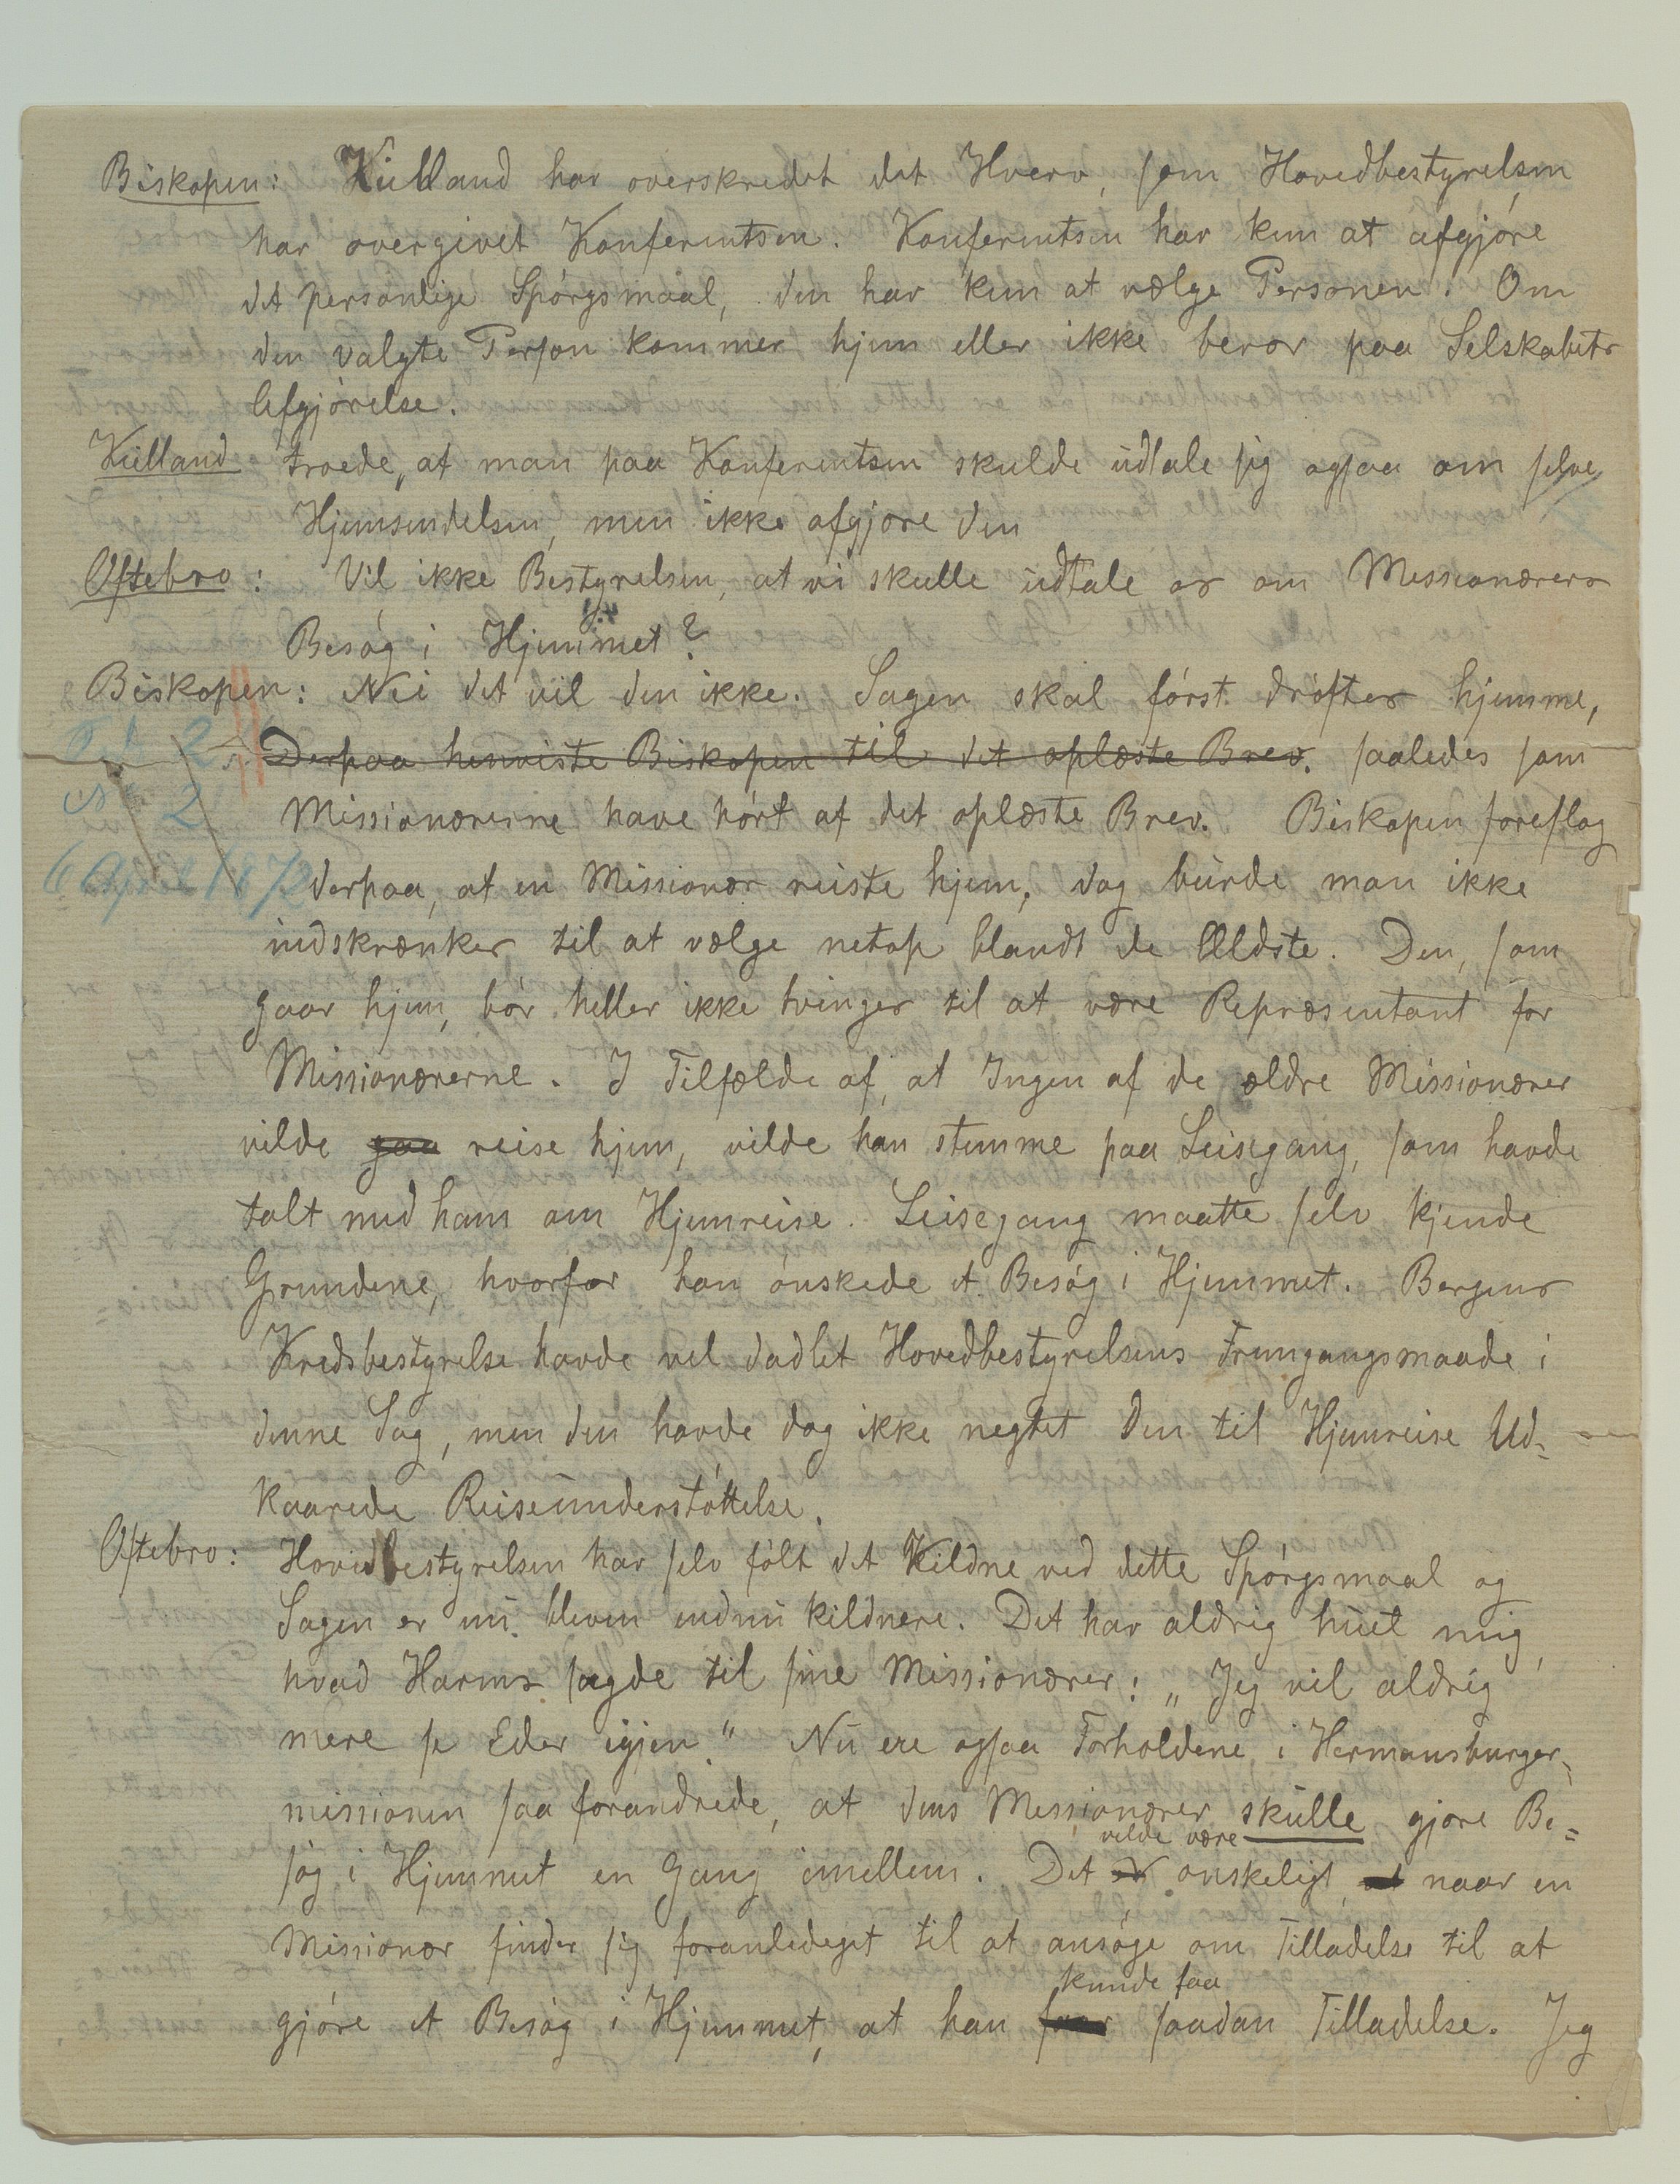 Biskopen: Kielland har overskredet det Hverv, som Hovedbestyrelsen
har overgivet Konferentsen. Konferentsen har kun at afgjöre
det personlige Spörgsmaal, den har kun at vælge Personen. Om
den valgte Person kommer hjem eller ikke beror paa Selskabets
Afgjörelse.
Kielland troede, at man paa Konferentsen skulde udtale sig ogsaa om selve
Hjemsendelsen, men ikke afgjöre den
Oftebro: Vil ikke Bestyrelsen, at vi skulle udtale os om Missionærers
Besög i Hjemmet?
Biskopen: Nei det vil den ikke. Sagen skal först dröftes hjemme,
Derpaa henviste Biskopen til det oplæste Brev. saaledes som
Missionærerne have hört af det oplæste Brev. Biskopen foreslog
6 April 1872 derpaa, at en Missionær reiste hjem, dog burde man ikke
indskrænkes til at vælge netop blandt de Ældste. Den, som
gaar hjem, bör heller ikke tvinges til at være Repræsentant for
Missionærerne. I Tilfælde af, at Ingen af de ældre Missionærer
vilde gaa reise hjem, vilde han stemme paa Leisegang, som havde
talt med ham om Hjemreise. Leisegang maatte selv kjende
Grundene, hvorfor han önskede et Besög i Hjemmet. Bergens
Kredsbestyrelse havde vel dadlet Hovedbestyrelsens Fremgangsmaade i
denne Sag, men den havde dog ikke negtet den til Hjemreise Ud-
kaarede Reiseunderstöttelse.
Oftebro: Hovedbestyrelsen har selv fölt det Kildne ved dette Spörgsmaal og
Sagen er nu bleven endnu kildnere. Det har aldrig huet mig,
hvad Harms sagde til sine Missionærer: „Jeg vil aldrig
mere se Eder igjen." Nu ere ogsaa Forholdene i Hermansburger-
missionen saa forandrede, at dens Missionærer skulle gjöre Be=
vilde være
sög i Hjemmet en Gang imellem. Det er önskeligt, at naar en
Missionær finder sig foranlediget til at ansöge om Tilladelse til at
kunde faa
gjöre et Besög i Hjemmet, at han faar saadan Tilladelse. Jeg